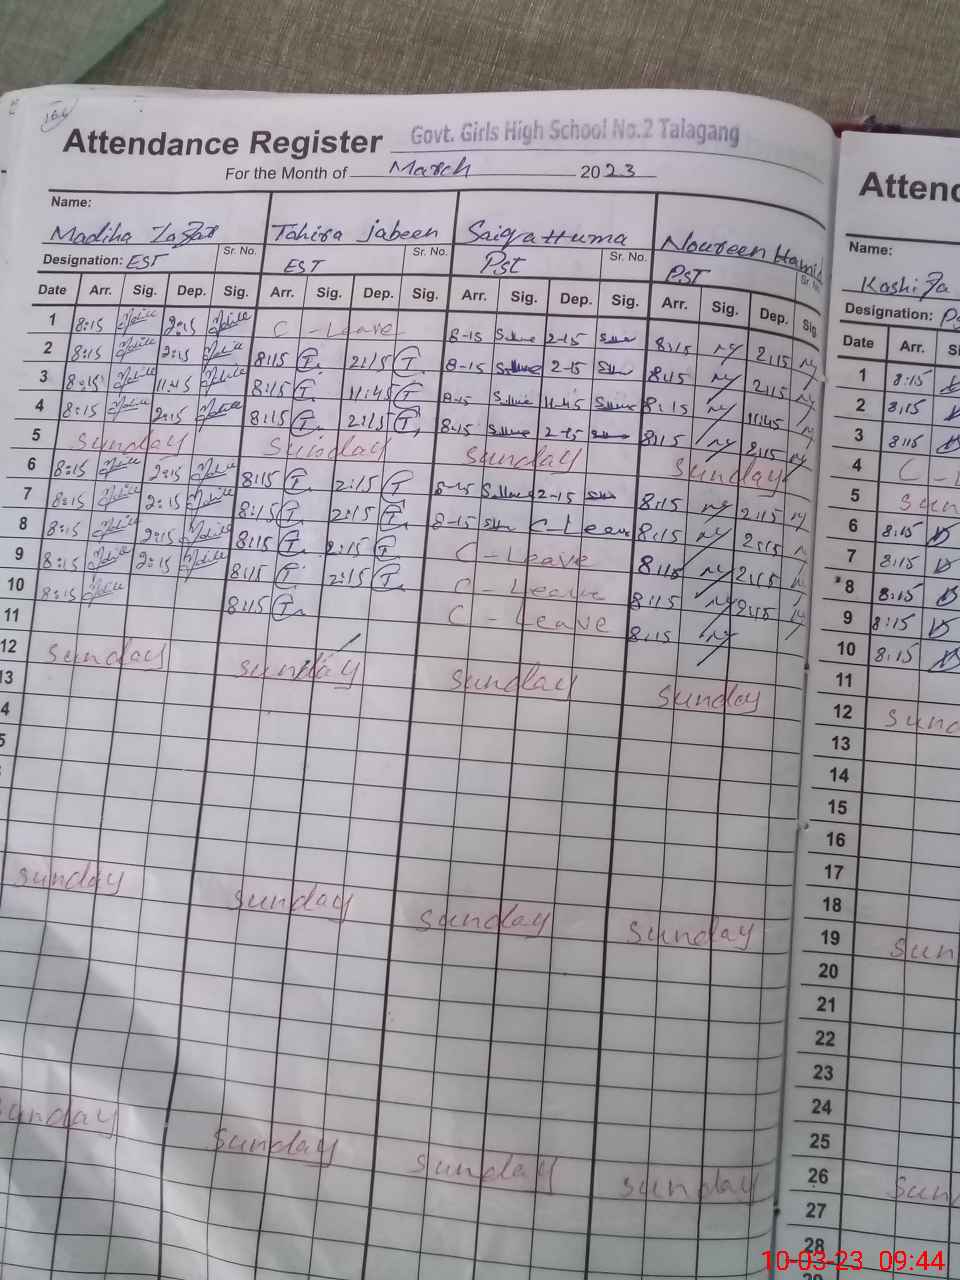 Attendance Register Govt. Girls High School No.2 Talagang
For the Month of March 2023
Attend
Name:
Name:
Madiha Tahira Jabeen Saiqa Huma Noureen Hamid
Kashifa
Designation: EST Sr. No. EST Sr. No. Pst Sr. No. PST Sr. No.
Designation:
Date Arr. Sig. Dep. Sig. Arr. Sig. Dep. Sig. Arr. Sig. Dep. Sig. Arr. Sig. Dep. Sig.
Date Arr.
1 8:15 2:15 C-Leave 8-15 2-15 8:15 2:15
2 8:15 2:15 8:15 T. 2:15 T 8-15 2-15 8:15 2:15
3 8:15 11:45 8:15 T. 11:45 T 8-15 11-45 8:15 11:45
4 8:15 2:15 8:15 T. 2:15 T 8-15 2-15 8:15 2:15
5 Sunday Sunday Sunday Sunday
6 8:15 2:15 8:15 T. 2:15 T 8-15 2-15 8:15 2:15
7 8:15 2:15 8:15 T 2:15 T 8-15 C-Leave 8:15 2:15
8 8:15 2:15 8:15 T 2:15 T C-Leave 8:15 2:15
9 8:15 2:15 8:15 T. 2:15 T. C-Leave 8:15 2:15
10 8:15 8:15 T. C-Leave 8:15
11
12 Sunday Sunday Sunday Sunday
13
4
5
Sunday Sunday Sunday Sunday
Sunday Sunday Sunday Sunday
1 8:15
2 8:15
3 8:15
4 C-
5 Sun
6 8:15
7 8:15
8 8:15
9 8:15
10 8:15
11
12 Sund
13
14
15
16
17
18
19 Sun
20
21
22
23
24
25
26 Sun
27
28
10-03-23 09:44